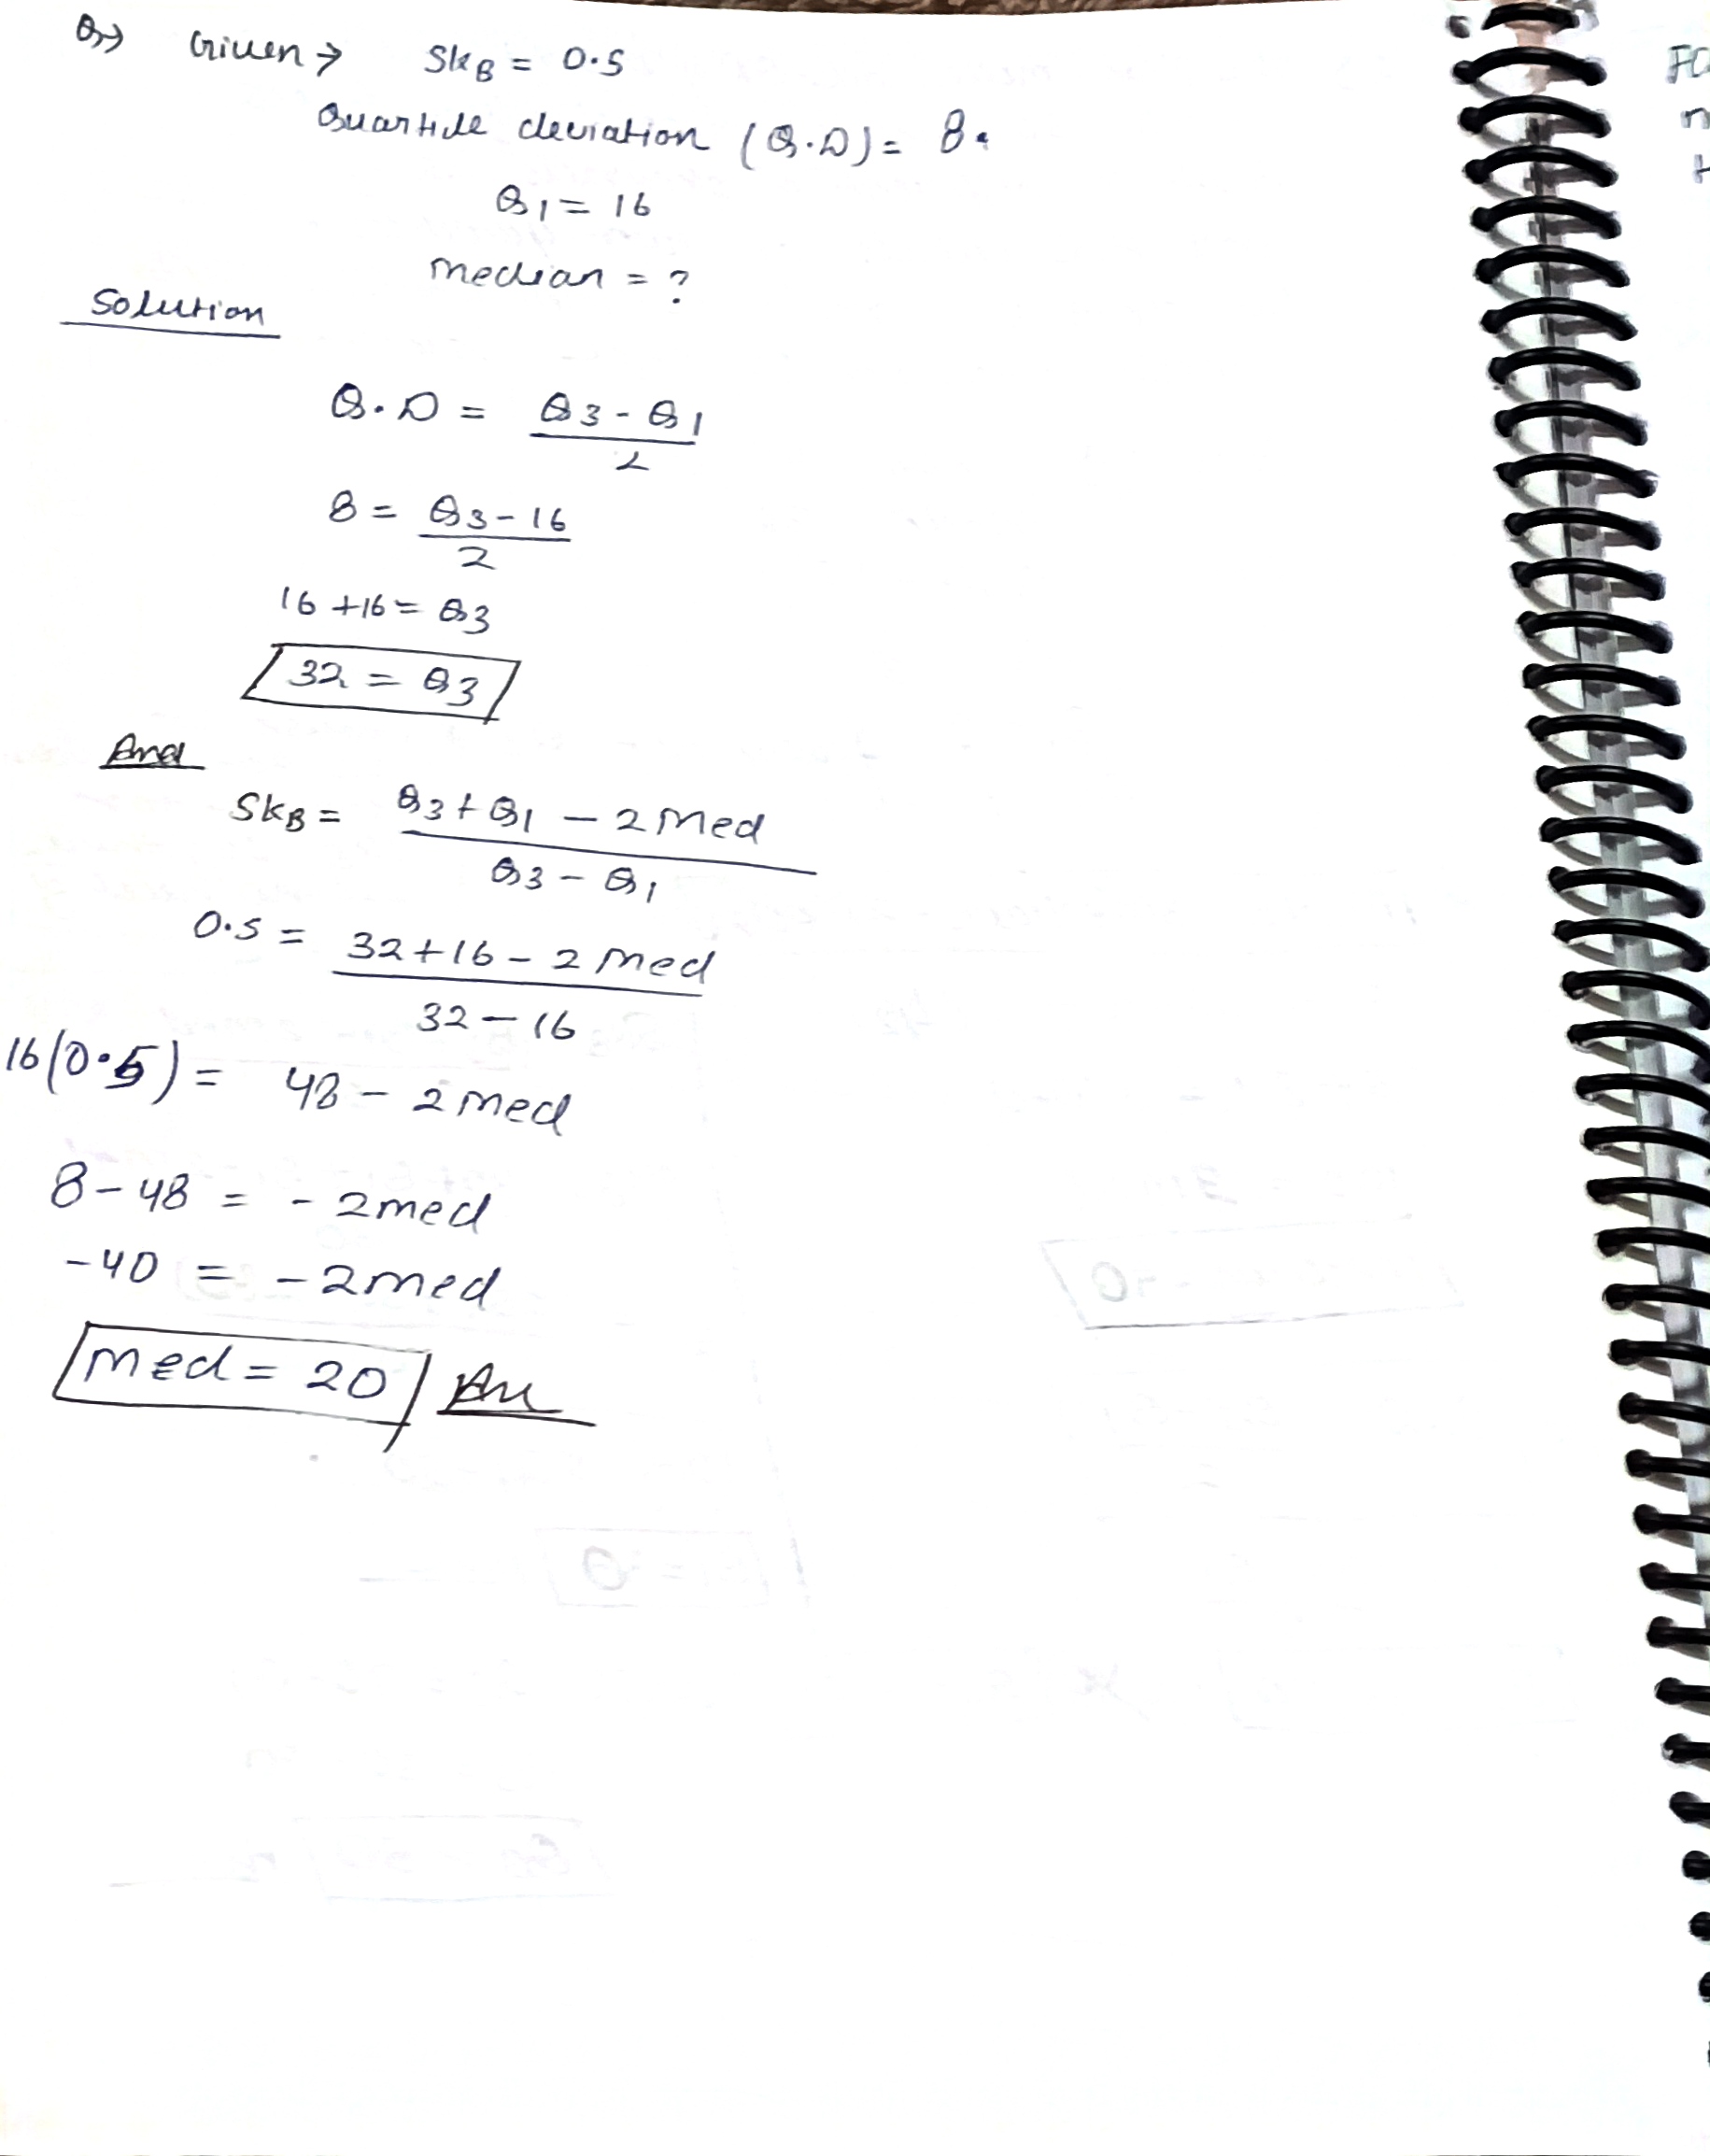 Q→ Given → SkB = 0.5
Quartile deviation (Q.D) = 8.
Q1 = 16
median = ?
Solution
Q.D = Q3 - Q1
2
8 = Q3 - 16
2
16 + 16 = Q3
32 = Q3
And
SkB = Q3 + Q1 - 2 Med
Q3 - Q1
0.5 = 32 + 16 - 2 med
32 - 16
16(0.5) = 48 - 2 med
8 - 48 = - 2 med
-40 = - 2 med
med = 20 Ans